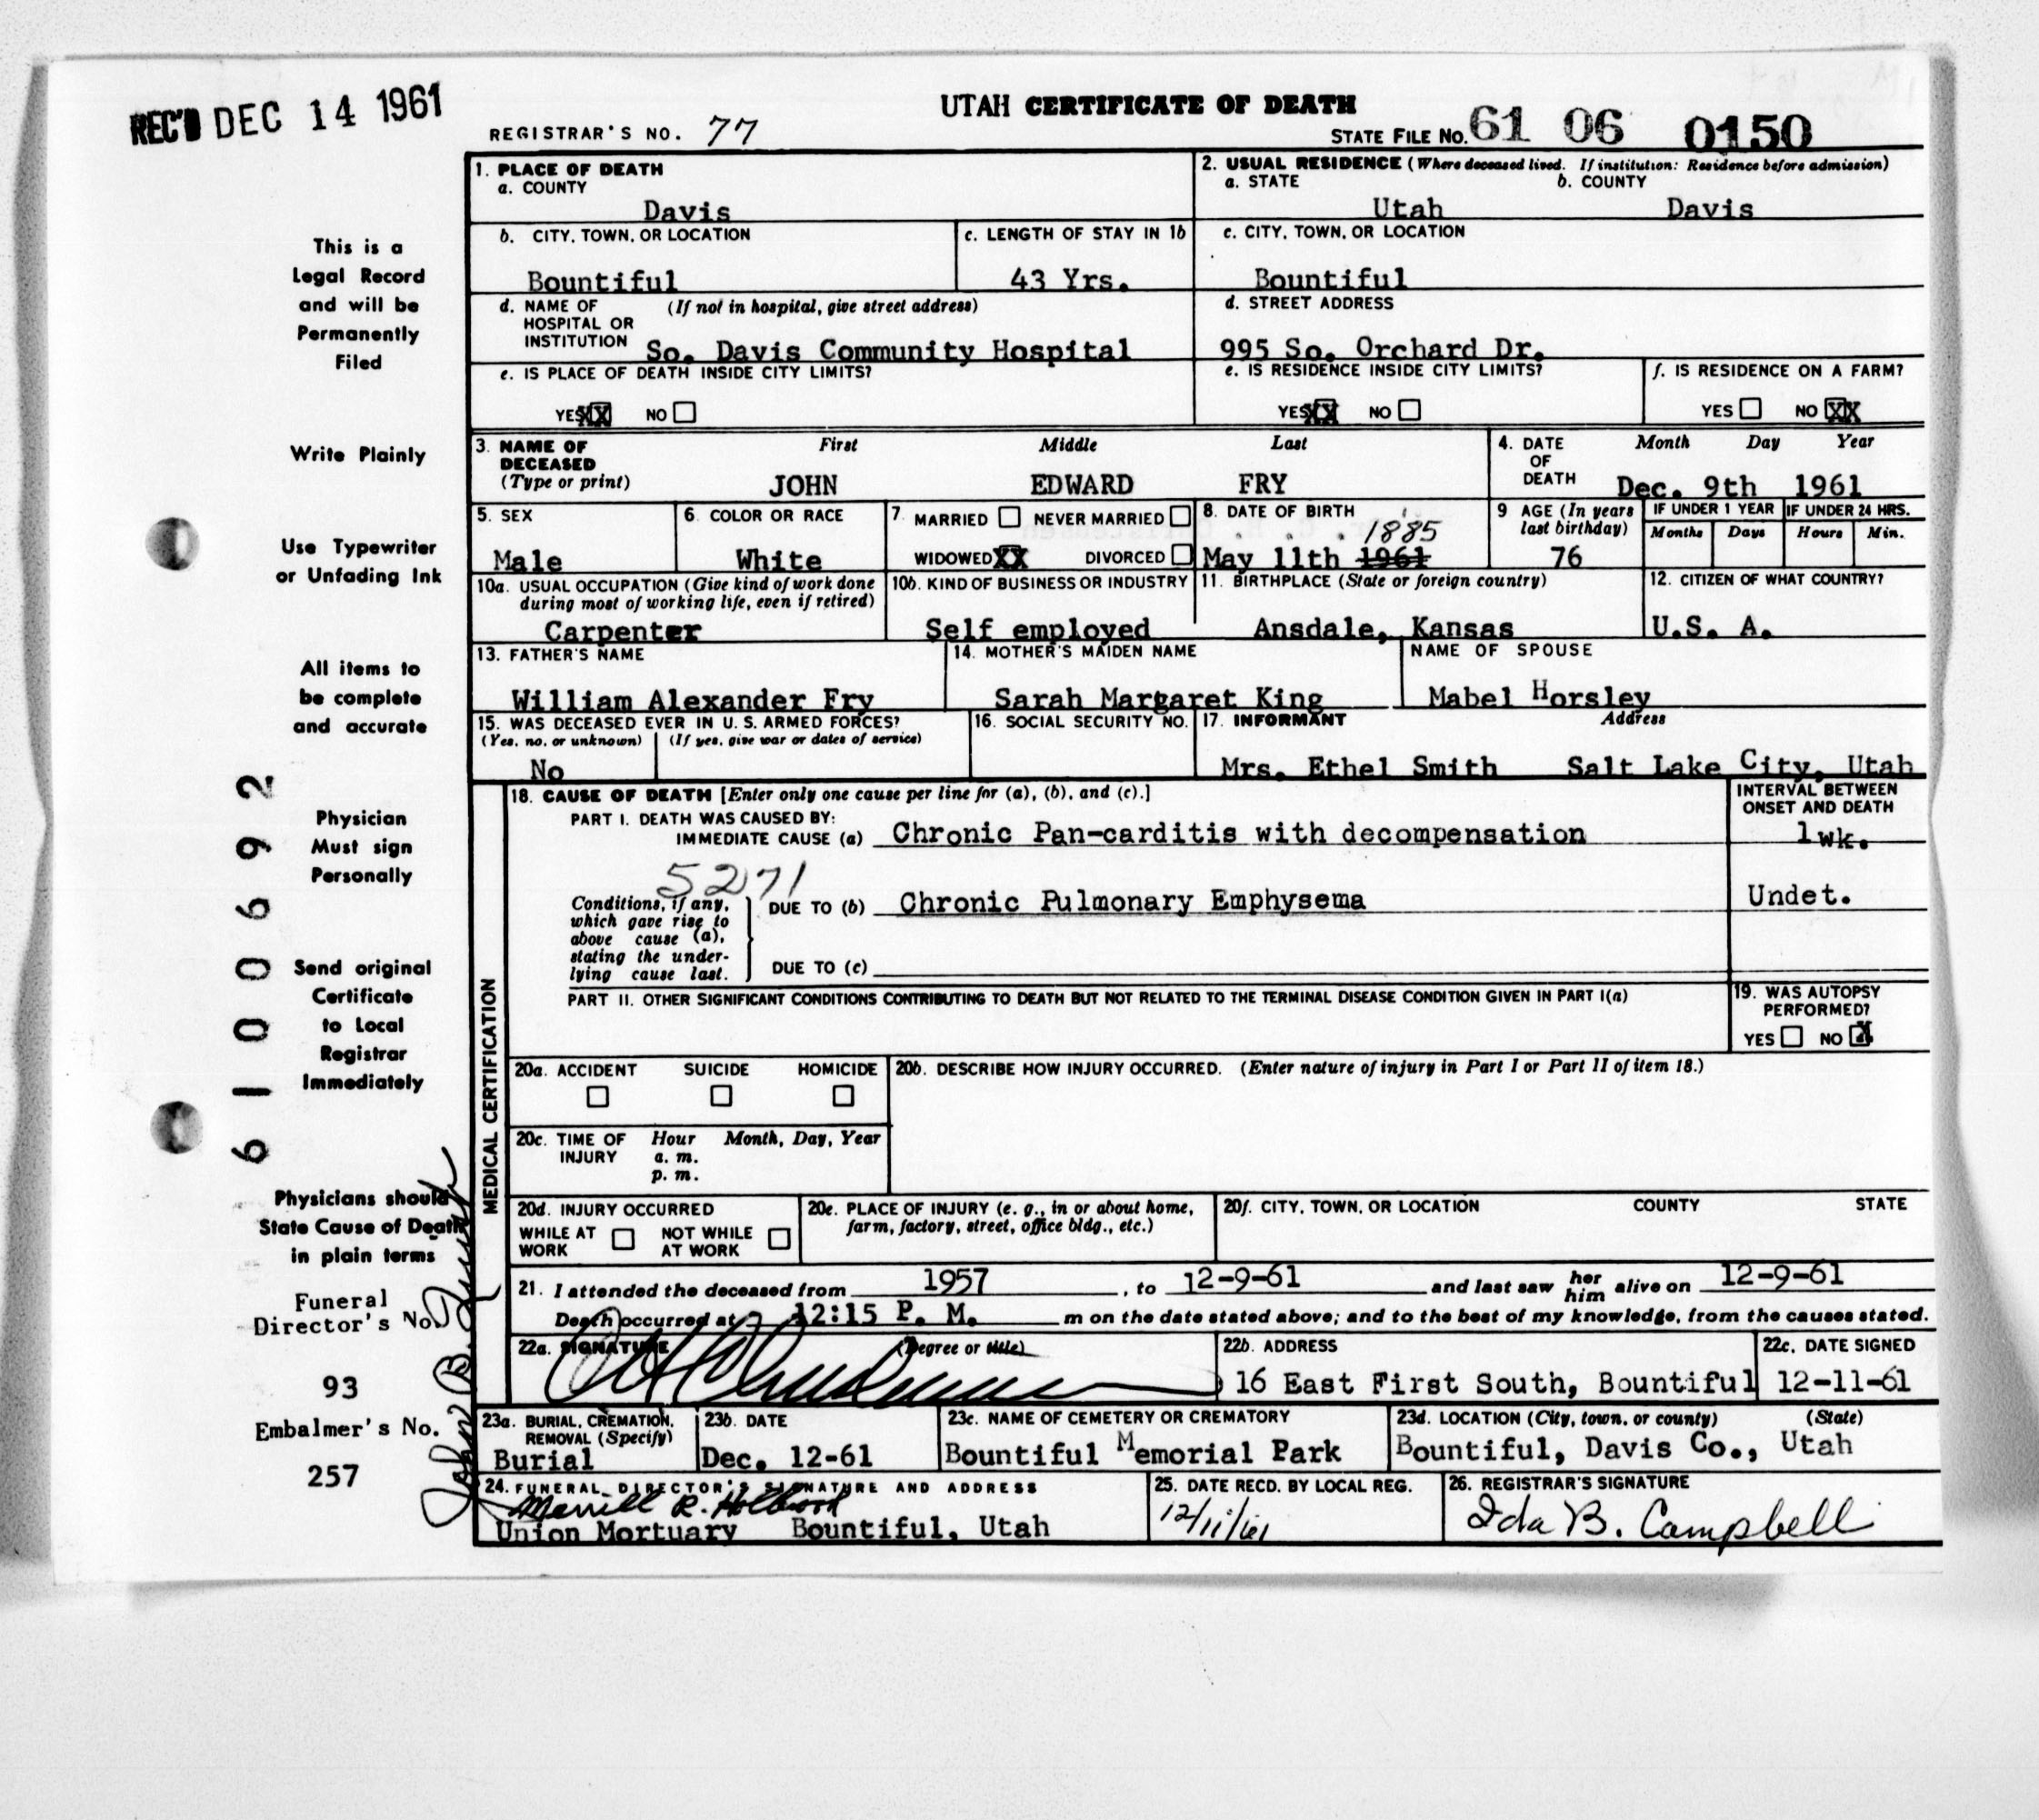 REC'D DEC 14 1961
UTAH CERTIFICATE OF DEATH
REGISTRAR'S NO. 77
STATE FILE NO. 61 06 0150
This is a
Legal Record
and will be
Permanently
Filed
Write Plainly
Use Typewriter
or Unfading Ink
All items to
be complete
and accurate
Physician
Must sign
Personally
Send original
Certificate
to Local
Registrar
Immediately
Physicians should
State Cause of Death
in plain terms
Funeral
Director's No.
93
Embalmer's No.
257
61 00692
John B.
1. PLACE OF DEATH
a. COUNTY
Davis
2. USUAL RESIDENCE (Where deceased lived. If institution: Residence before admission)
a. STATE b. COUNTY
Utah Davis
b. CITY, TOWN, OR LOCATION
Bountiful
c. LENGTH OF STAY IN 1b
43 Yrs.
c. CITY, TOWN, OR LOCATION
Bountiful
d. NAME OF (If not in hospital, give street address)
HOSPITAL OR
INSTITUTION So. Davis Community Hospital
d. STREET ADDRESS
995 So. Orchard Dr.
e. IS PLACE OF DEATH INSIDE CITY LIMITS?
YES XX NO
e. IS RESIDENCE INSIDE CITY LIMITS?
YES XX NO
f. IS RESIDENCE ON A FARM?
YES NO XX
3. NAME OF First Middle Last
DECEASED
(Type or print) JOHN EDWARD FRY
4. DATE Month Day Year
OF
DEATH Dec. 9th 1961
5. SEX
Male
6. COLOR OR RACE
White
7. MARRIED NEVER MARRIED
WIDOWED XX DIVORCED
8. DATE OF BIRTH
1885
May 11th 1961
9 AGE (In years
last birthday)
76
IF UNDER 1 YEAR IF UNDER 24 HRS.
Months Days Hours Min.
10a. USUAL OCCUPATION (Give kind of work done
during most of working life, even if retired)
Carpenter
10b. KIND OF BUSINESS OR INDUSTRY
Self employed
11. BIRTHPLACE (State or foreign country)
Ansdale, Kansas
12. CITIZEN OF WHAT COUNTRY?
U.S. A.
13. FATHER'S NAME
William Alexander Fry
14. MOTHER'S MAIDEN NAME
Sarah Margaret King
NAME OF SPOUSE
Mabel Horsley
15. WAS DECEASED EVER IN U. S. ARMED FORCES?
(Yes, no, or unknown) (If yes, give war or dates of service)
No
16. SOCIAL SECURITY NO.
17. INFORMANT Address
Mrs. Ethel Smith Salt Lake City, Utah
MEDICAL CERTIFICATION
18. CAUSE OF DEATH [Enter only one cause per line for (a), (b), and (c).]
PART I. DEATH WAS CAUSED BY:
IMMEDIATE CAUSE (a) Chronic Pan-carditis with decompensation
INTERVAL BETWEEN
ONSET AND DEATH
1 wk.
5271
Conditions, if any,
which gave rise to
above cause (a),
stating the under-
lying cause last.
DUE TO (b) Chronic Pulmonary Emphysema
Undet.
DUE TO (c)
PART II. OTHER SIGNIFICANT CONDITIONS CONTRIBUTING TO DEATH BUT NOT RELATED TO THE TERMINAL DISEASE CONDITION GIVEN IN PART I(a)
19. WAS AUTOPSY
PERFORMED?
YES NO X
20a. ACCIDENT SUICIDE HOMICIDE
20b. DESCRIBE HOW INJURY OCCURRED. (Enter nature of injury in Part I or Part II of item 18.)
20c. TIME OF Hour Month, Day, Year
INJURY a. m.
p. m.
20d. INJURY OCCURRED
WHILE AT NOT WHILE
WORK AT WORK
20e. PLACE OF INJURY (e. g., in or about home,
farm, factory, street, office bldg., etc.)
20f. CITY, TOWN, OR LOCATION COUNTY STATE
21. I attended the deceased from 1957, to 12-9-61 and last saw her him alive on 12-9-61
Death occurred at 12:15 P. M. m on the date stated above; and to the best of my knowledge, from the causes stated.
22a. SIGNATURE (Degree or title)
22b. ADDRESS
16 East First South, Bountiful
22c. DATE SIGNED
12-11-61
23a. BURIAL, CREMATION,
REMOVAL (Specify)
Burial
23b. DATE
Dec. 12-61
23c. NAME OF CEMETERY OR CREMATORY
Bountiful Memorial Park
23d. LOCATION (City, town, or county) (State)
Bountiful, Davis Co., Utah
24. FUNERAL DIRECTOR'S SIGNATURE AND ADDRESS
Merrill R. Holbrook
Union Mortuary Bountiful, Utah
25. DATE RECD. BY LOCAL REG.
12/11/61
26. REGISTRAR'S SIGNATURE
Ida B. Campbell